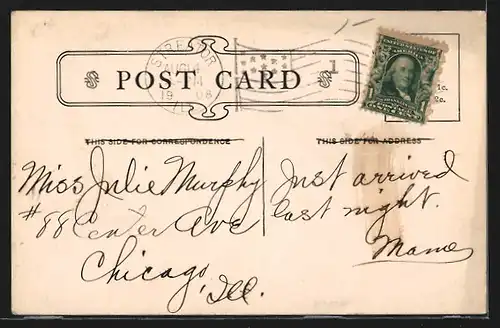 STREATOR
AUG 14
1908
ILL.
1
POST CARD
1c.
2c.
THIS SIDE FOR CORRESPONDENCE
THIS SIDE FOR ADDRESS
Miss Julie Murphy
#88 Center Ave
Chicago,
Ill.
Just arrived
last night.
Mame